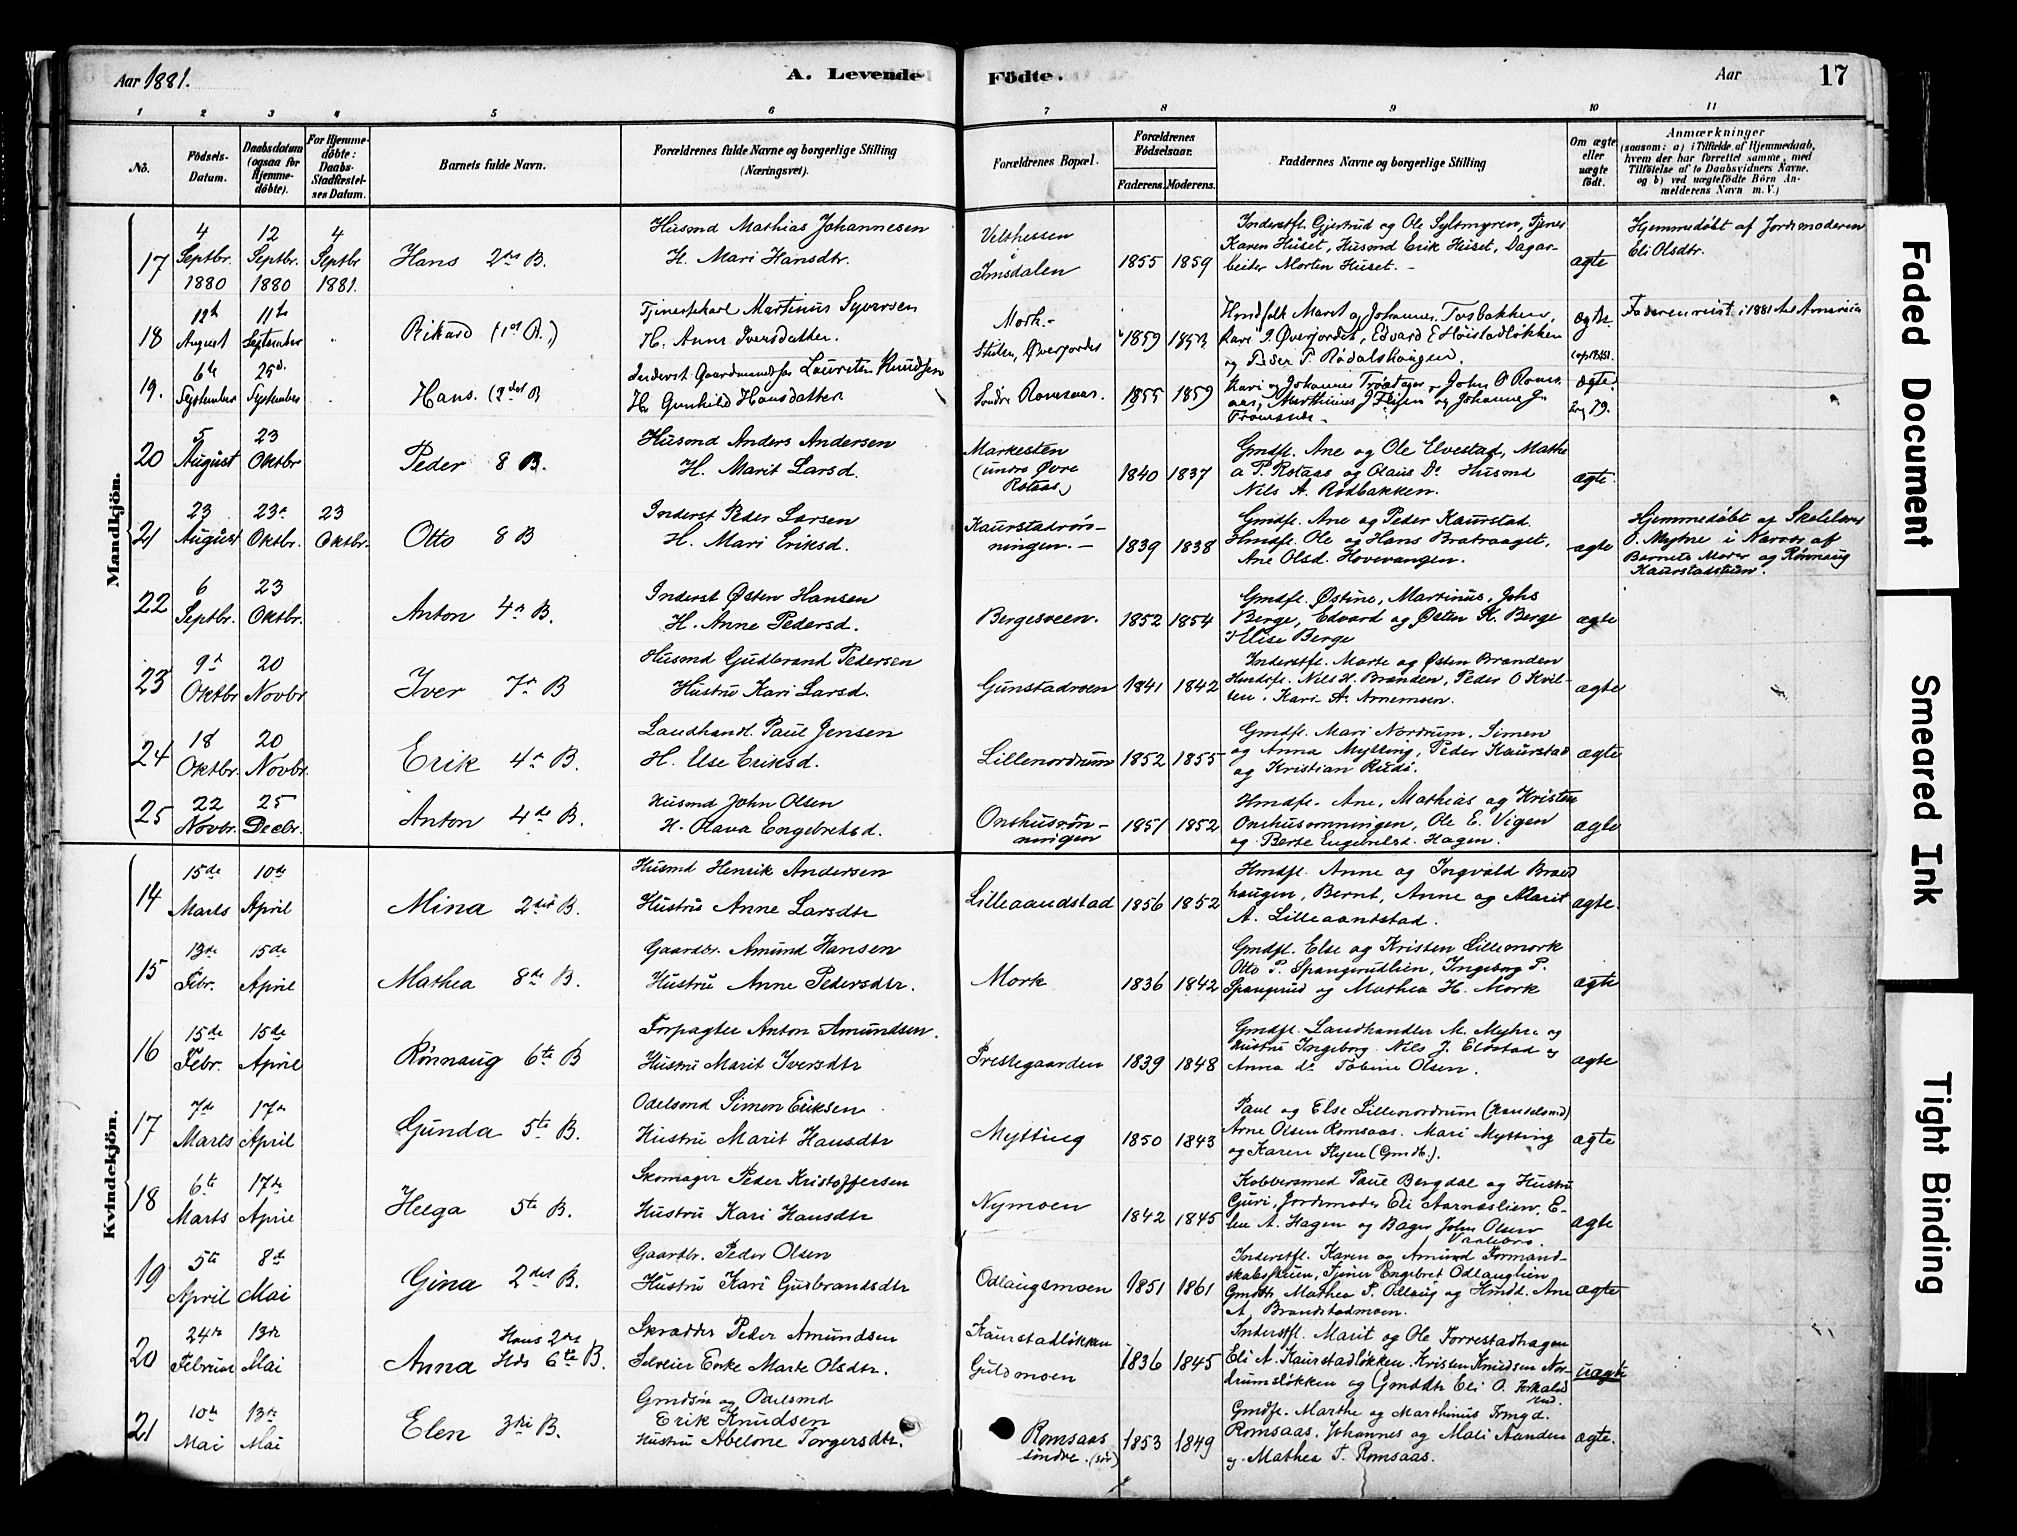 Aar 1881.
A. Levende Födte.
Aar
17
1 2 3 4 5 6 7 8 9 10 11
No.
Födsels-Datum.
Daabsdatum (ogsaa for Hjemmedöbte).
For Hjemmedöbte: Daabs-Stadfæstelses Datum.
Barnets fulde Navn.
Forældrenes fulde Navne og borgerlige Stilling (Næringsvei).
Forældrenes Bopæl.
Forældrenes Födselsaar.
Faderens. Moderens.
Faddernes Navne og borgerlige Stilling
Om ægte eller uægte födt.
Anmærkninger
(saasom: a) i Tilfælde af Hjemmedaab, hvem der har forrettet samme, med Tilföielse af to Daabsvidners Navne. og b) ved uægtefödte Börn Anmelderens Navn m. V.)
Mandkjön.
17
4 Septbr. 1880
12 Septbr. 1880
4 Septbr 1881.
Hans 2det B.
Husmd Mathias Johannesen
H. Mari Hansdtr.
Imsdalen
1855 1859
Inderstfl. Gjertrud og Ole Syltmyren, Tjener
Karen Huset, Husmd Erik Huset, Dagar-
beider Morten Huset. -
ægte
Hjemmedøbt af Jordmoderen
Eli Olsdtr.
18
August
September
Rikard (1st B.)
Tjenestekarl Martinus Syversen
H. Anne Iversdatter.
1859
og Peder P. Rødalshaugen.
ægte
Faderen reist i 1881 til Amerika
19.
6te September
25d. September
Hans. (2det B
Inderst Gaardmandsøn Laurits Knudsen
H. Gunhild Hansdatter
Søndre Romsaas.
1855 1859
ægte
20
5 August
23 Oktbr
Peder 8 B.
Husmd Anders Andersen
H. Marit Larsd.
Markesten
(undre Øvre
Rotaas)
1840 1837
Gmdfl. Ane og Ole Elvestad, Mathe
a P. Rotaas og Olaus Do Husmd
Nils A. Rødbakken.
ægte.
21
23 August
23de Oktbr.
23 Oktbr.
Otto 8 B
Inderst Peder Larsen
H. Mari Eriksd.
Kaurstadrøn-
ningen. -
1839 1838
Gmdfl. Ane og Peder Kaurstad.
Hmdfl. Ole og Hans Bratraaget,
Ane Olsd. Hovevangen.
ægte
Hjemmedøbt af Skolelærer
O. Myhre i Nærvær af
Barnets Moder og Rønnaug
Kaurstadstuen.
22
6 Septbr.
23 Oktbr.
Anton 4de B.
Inderst Østen Hansen
H. Anne Pedersd.
Bergesveen.
1852 1854
Gmdfl. Østine, Martinus, Johs
Berge, Edvard og Østen H. Berge
Elise Berge
ægte
23
9de Oktbr
20 Novbr
Iver 7de B
Husmd Gudbrand Pedersen
Hustru Kari Larsd.
Gunstadroen
1841 1842
Inderstfl. Marte og Østen Branden
Husmfl. Nils H. Branden, Peder O Kvil-
len, Kari A. Arnemoen.
ægte
24
18 Oktbr.
20 Novbr.
Erik 4de B.
Landhandl. Paul Jensen
H. Else Eriksd.
Lillenordrum
1852 1855
Gmdfl. Mari Nordrum, Simen
og Anna Mytting, Peder Kaurstad
og Kristian Ruds.
ægte
25
22 Novbr.
25 Decbr.
Anton 4de B.
Husmd John Olsen
H. Olava Engebretsd.
Onshusrøn-
ningen
1851 1852
Hmdfl. Ane, Mathias og Kristen
Onshusrønningen, Ole E. Vigen
og Berte Engebretsd. Hagen.
ægte
Kvindekjön.
14
15de Marts
10de April
Mina 2det B.
Husmd Henrik Andersen
Hustru Anne Larsdtr
Lilleaandstad
1856 1852
Hmdfl. Anne og Ingvald Braend
haugen, Bernt, Anne og Marit
A. Lilleaandstad.
ægte.
15
13de Febr.
15de April
Mathea 8de B.
Gaardbr. Amund Hansen
Hustru Anne Pedersdtr.
Mork
1836 1842
Gmdfl. Else og Kristen Lillemork
Otto P. Spangrudlien, Ingeborg P.
Spangrud og Mathea H. Mork
ægte
16
15de Febr.
15de April
Rønnaug 6te B
Forpagter Anton Amundsen.
Hustru Marit Iversdtr
Prestegaarden
1839 1848
Gmdfl. Landhandler M. Myhre og
Hustru Ingeborg. Nils J. Elöstad og
Anna do Tobine Olsen.
ægte
17
7de Marts
17de April
Gunda 5te B.
Odelsmd Simen Eriksen
Hustru Marit Hansdtr
Mytting
1850 1843
Paul og Else Lillenordrum (Handelsmd)
Arne Olsen Romsaas. Mari Mytting
og Karen Flyen (Gmdb.).
ægte
18
6te Marts
17de April
Helga 5te B.
Skomager Peder Kristoffersen
Hustru Kari Hansdtr
Nymoen
1842 1845
Kobbersmed Paul Bergdal og Hustru
Guri, Jordemoder Eli Aarnæslien, E-
len A. Hagen og Bager John Olsen
ægte
19
5te April
8de Mai
Gina 2det B.
Gaardbr. Peder Olsen
Hustru Kari Gudbrandsdtr
Odlaugsmoen
1851 1861
Inderstfl. Karen og Amund Formand-
skabsstuen, Tjener Engebret Odlauglien
Gmdtr Mathea P. Odlaug og Hmdd. Ane
A. Brandstadmoen.
ægte
20
24de Februar
13de Mai
Anna Hans 2det Hds 6te B.
Skrædder Peder Amundsen
Selveier Enke Marte Olsdtr.
Kaurstadløkken
Guldmoen
1836 1845
Inderstfl. Marit og Ole Forrestadhagen
Eli A. Kaurstadløkken. Kristen Knudsen Nor-
drumsløkken og Gmddtr Eli O.
uægte
21
10de Mai
13de Mai
Elen 3die B.
Gmdsøn og Odelsmd
Erik Knudsen
Hustru Abelone Torgersdtr.
Romsaas
søndre. (sør)
1853 1849
Gmdfl. Marthe og Marthinus
Romsaas, Johannes og Mali Aanden
og Mathea T. Romsaas.
ægte.
Faded Document
Smeared Ink
Tight Binding